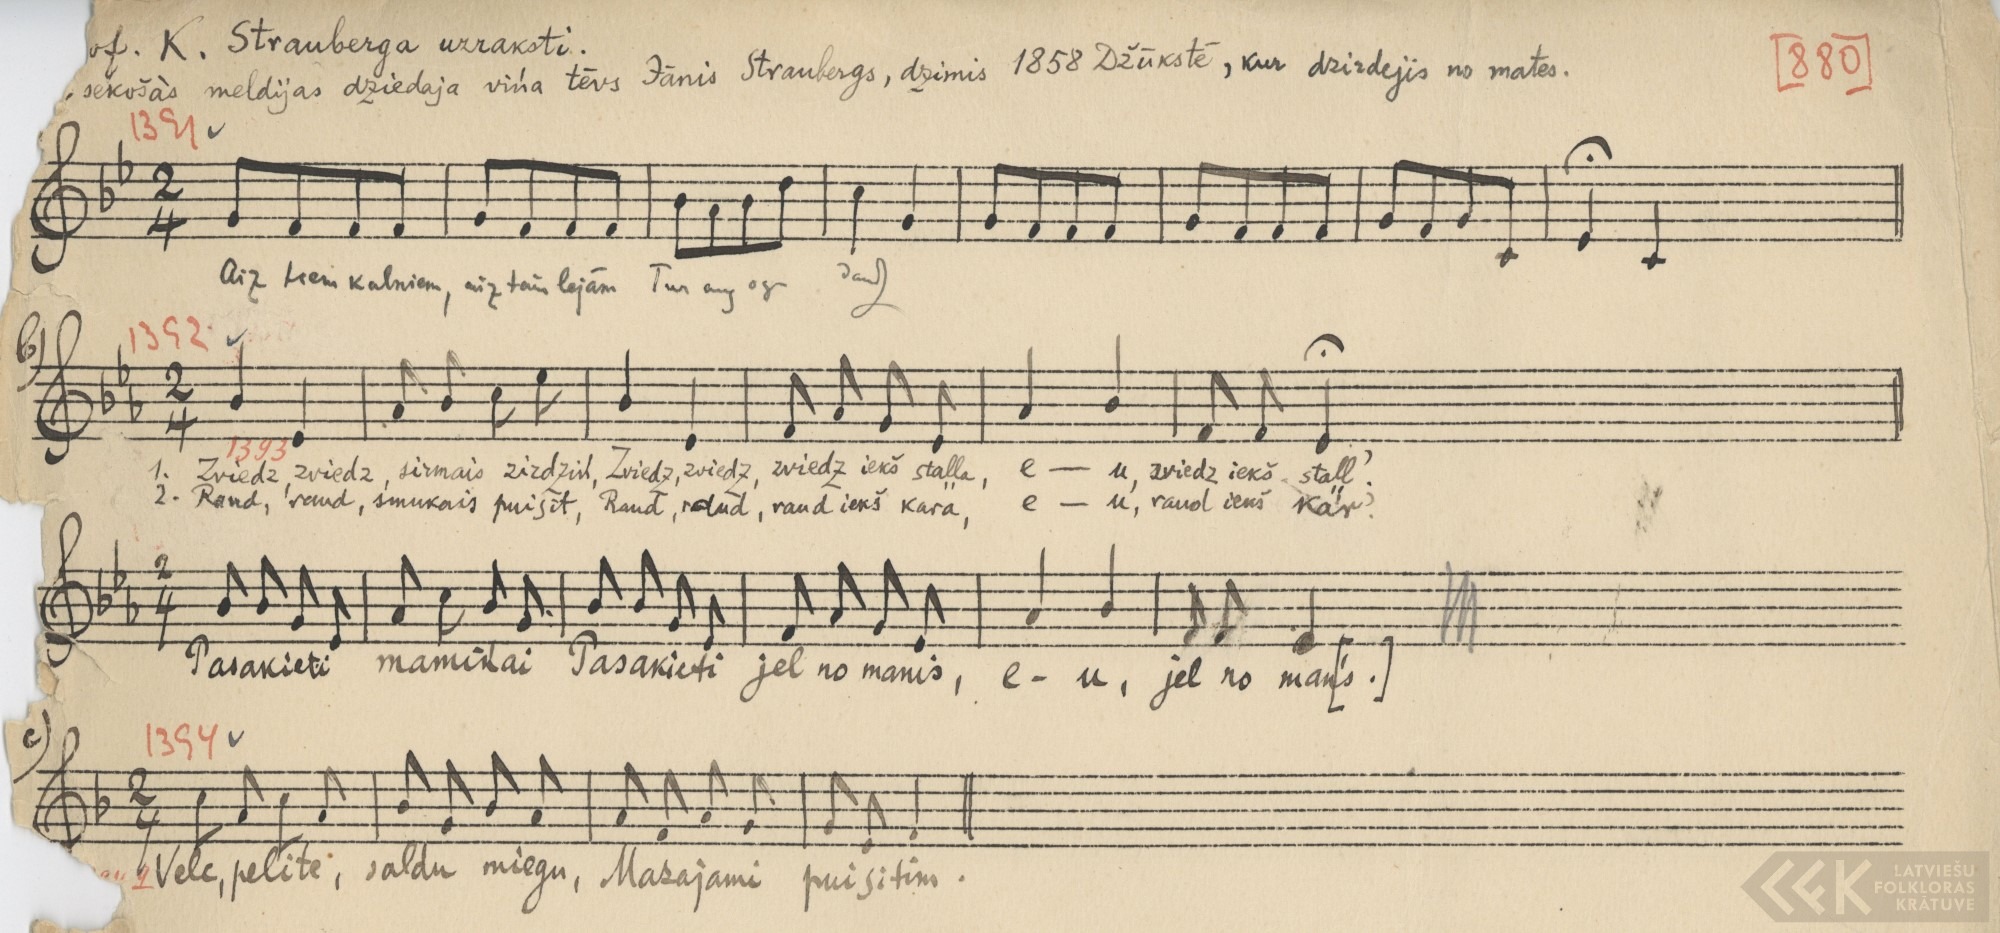 of. K. Strauberga uzraksti.
sekošàs meldijas dziedaja viņa tēvs Jānis Straubergs, dzimis 1858 Džūkstē, kur dzirdejis no mates.
[880]
1391
2/4
Aiz tiem kalniem, aiz tām lejām Tur aug og daudz
b)
1392
2/4
1393
1. Zviedz, zviedz, sirmais zirdziņ, Zviedz, zviedz, zviedz iekš staļļa, e — u, zviedz iekš staļļ'.
2. Raud, raud, smukais puisit, Raud, raud, raud iekš kaŗa, e — u, raud iekš kaŗ'.
2/4
Pasakieti mamiņai Pasakieti jel no manis, e - u, jel no man[i]s.]
c)
1394
2/4
Velc, pelite, saldu miegu, Mazajami puisitim.
LATVIEŠU
FOLKLORAS
KRĀTUVE